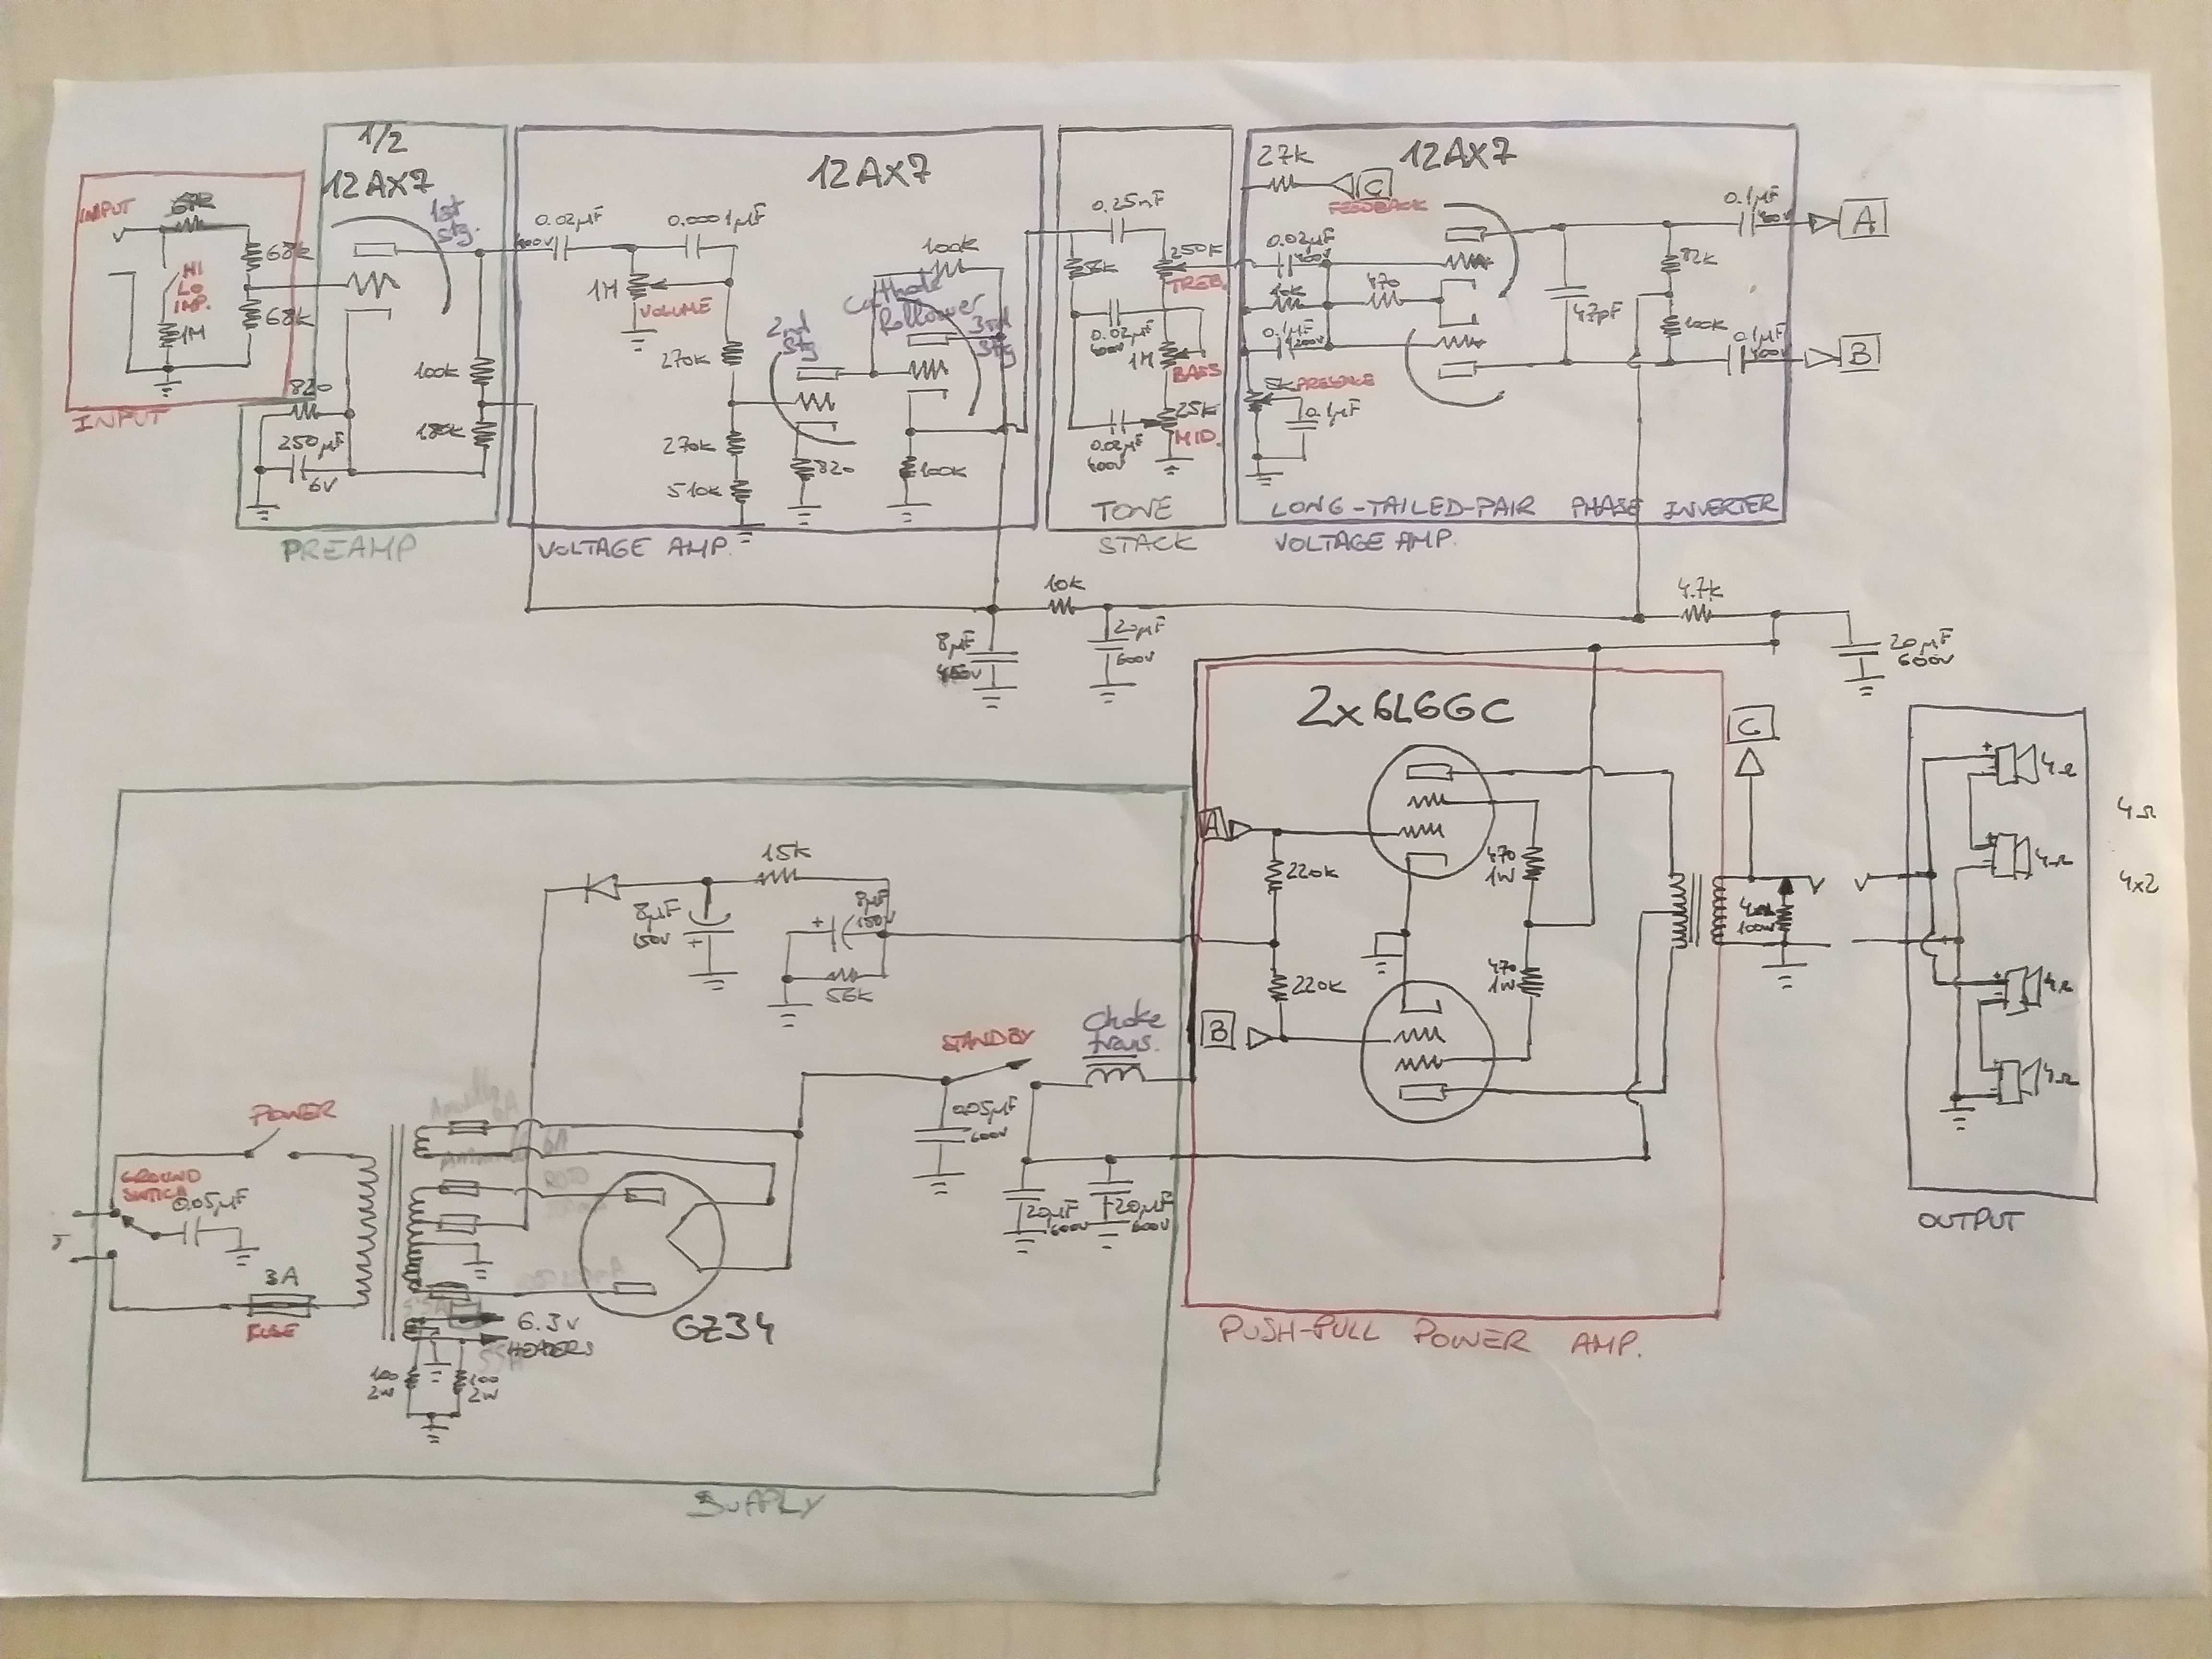 INPUT
68k
68k
HI
LO
IMP.
1M
INPUT
1/2
12AX7
1st
Stg.
820
250µF
6V
100k
180k
PREAMP
12AX7
0.02µF
400V
0.0001µF
1M
VOLUME
270k
270k
510k
2nd
Stg
Cathode
Follower
3rd
Stg
100k
820
100k
VOLTAGE AMP.
0.25nF
56k
250k
TREB.
0.02µF
600V
1M
BASS
25k
MID.
0.02µF
600V
TONE
STACK
27k
C
FEEDBACK
12AX7
0.02µF
400V
10k
470
0.1µF
200V
5k
PRESENCE
0.1µF
47pF
82k
100k
0.1µF
400V
A
0.1µF
400V
B
LONG-TAILED-PAIR PHASE INVERTER
VOLTAGE AMP.
10k
8µF
450V
20µF
600V
4.7k
20µF
600V
2x6L6GC
A
220k
220k
B
470
1W
470
1W
C
100W
PUSH-PULL POWER AMP.
4Ω
4Ω
4Ω
4Ω
OUTPUT
4Ω
4x2
15k
8µF
150V
+
8µF
150V
+
56k
STANDBY
Choke
trans.
0.05µF
600V
20µF
600V
20µF
600V
POWER
GROUND
SWITCH
0.05µF
3A
FUSE
6.3V
HEATERS
100
2W
100
2W
GZ34
SUPPLY